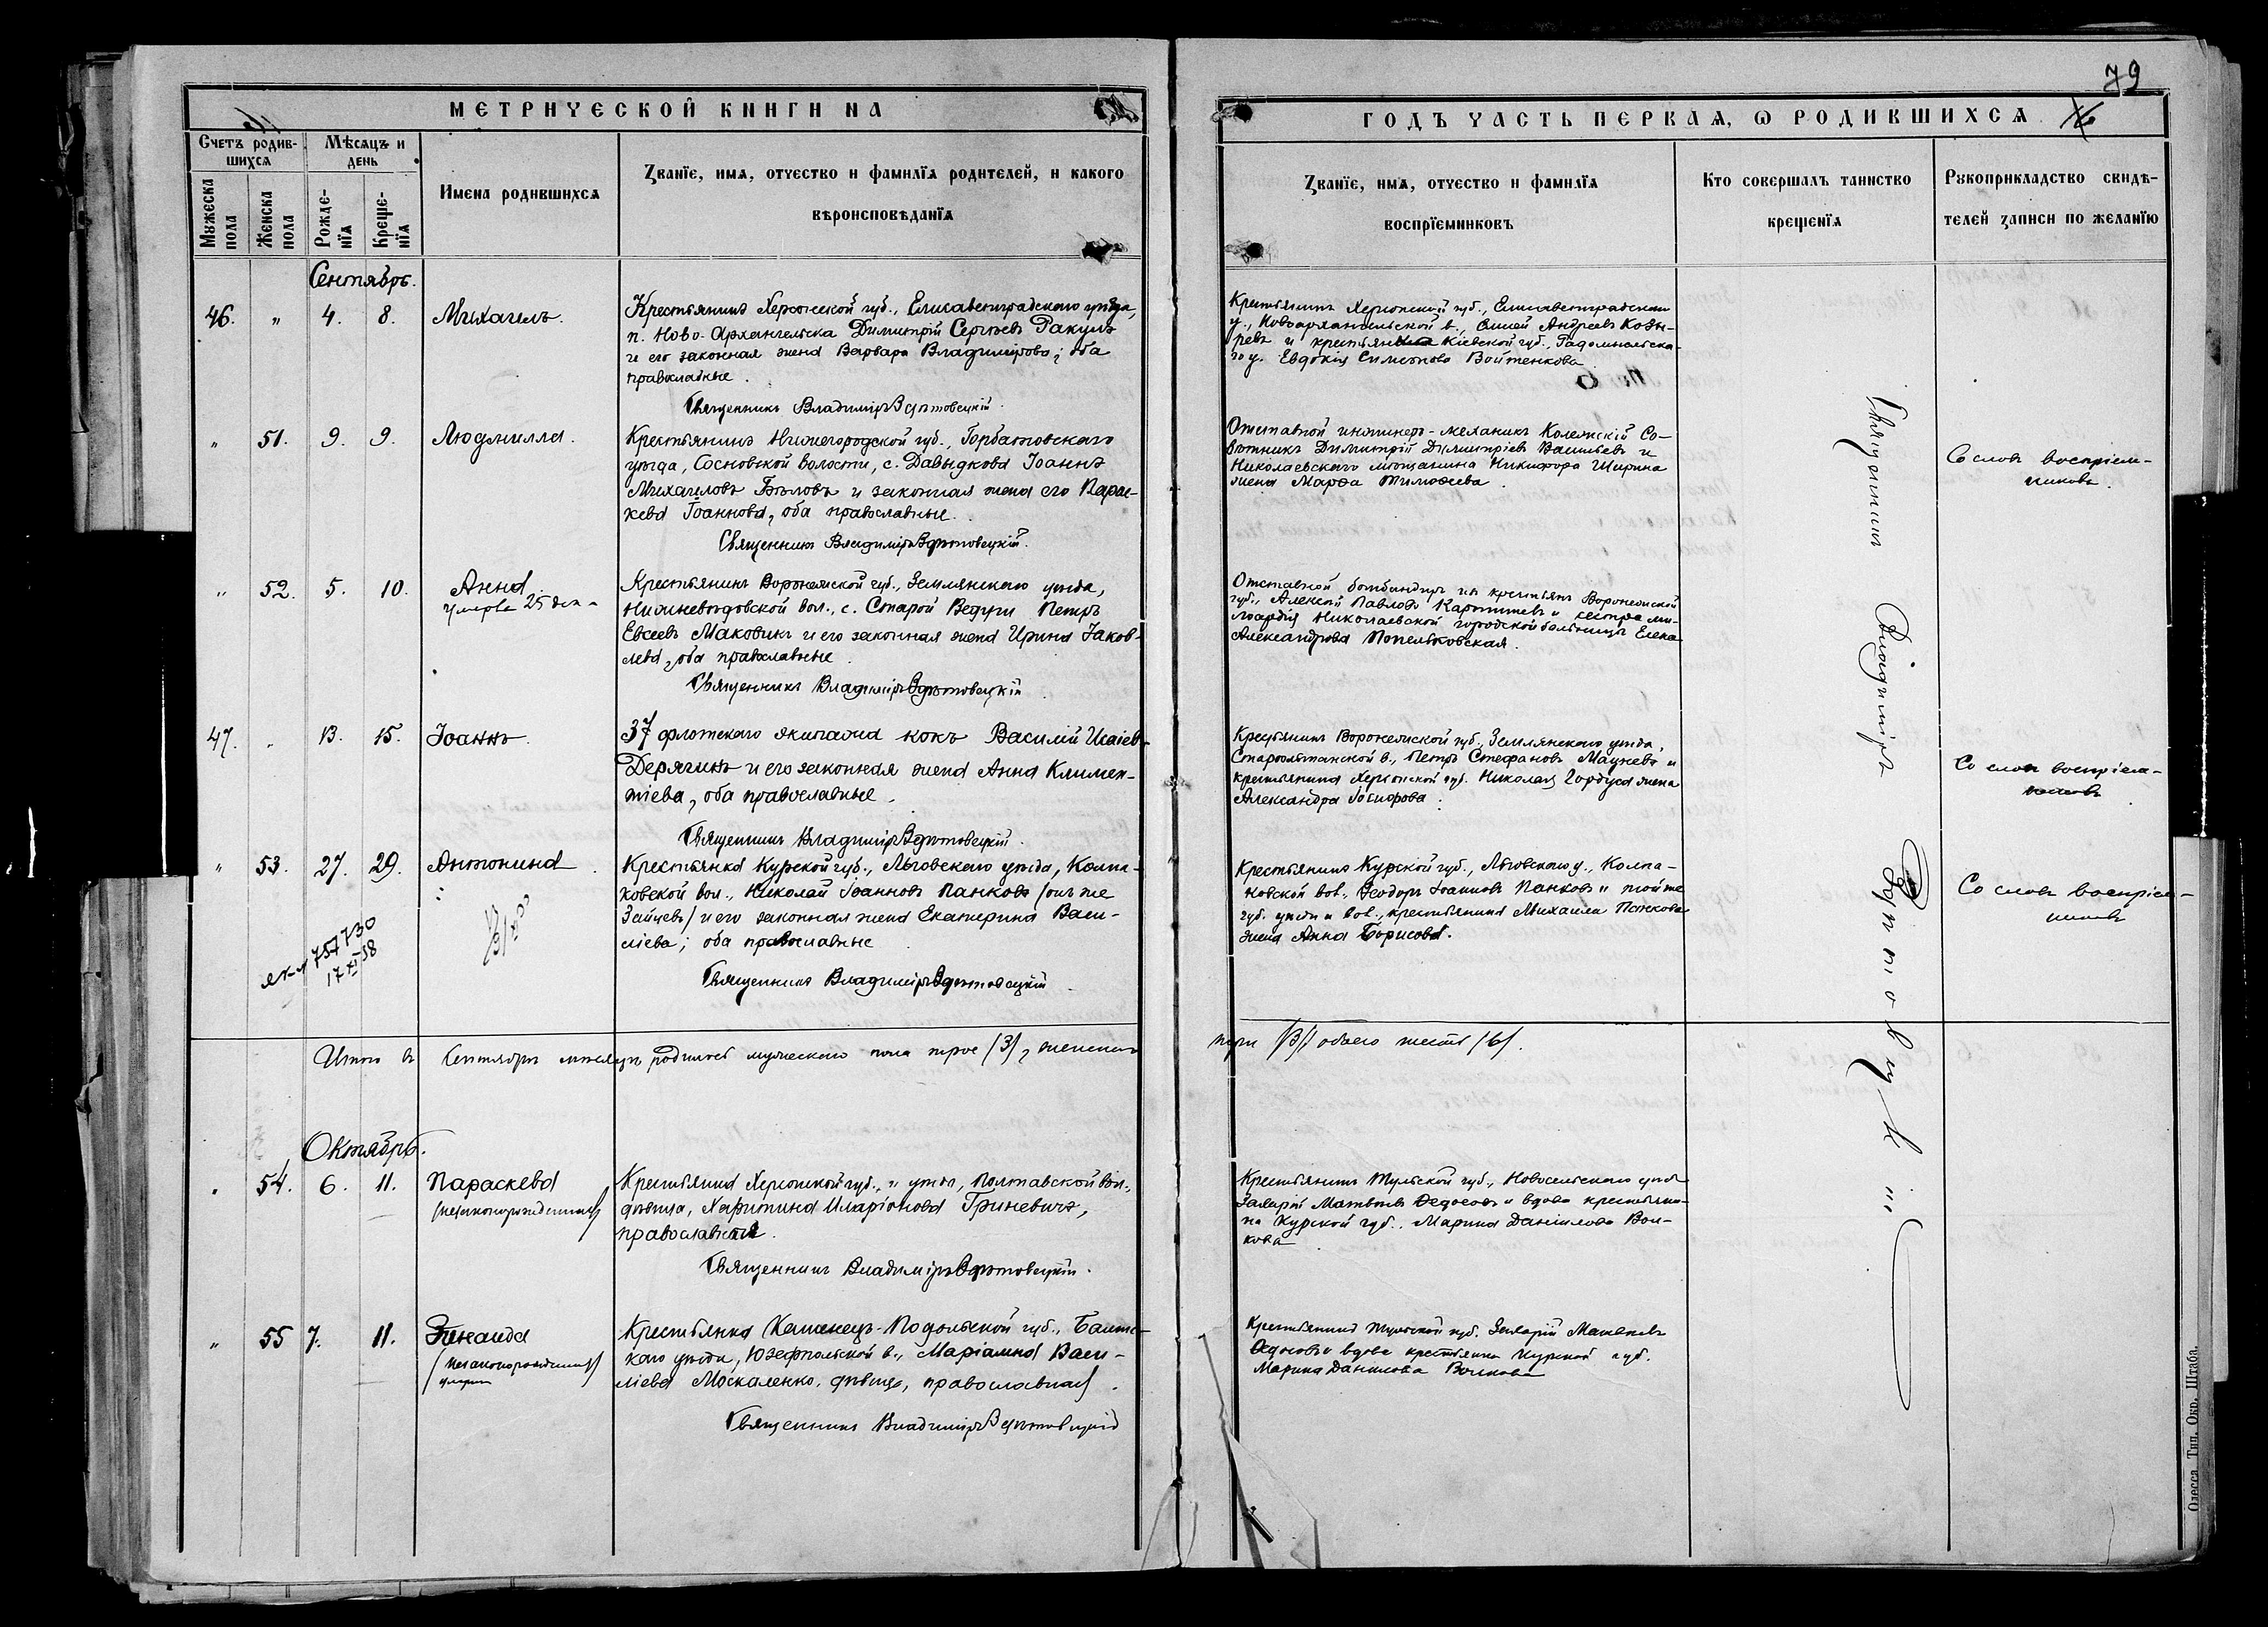 79
МЕТРИЧЕСКОЙ КНИГИ НА
ГОДЪ ЧАСТЬ ПЕРВАЯ, Ѡ РОДИВШИХСЯ
Счетъ родив-
шихся
Мѣсяцъ и
день
Мужеска
пола
Женска
пола
Рожде-
нїя
Креще-
нїя
Имена родившихся
Званїе, имя, отчество и фамилїя родителей, и какого
вѣроисповѣданїя
Званїе, имя, отчество и фамилїя
воспрїемниковъ
Кто совершалъ таинство
крещенїя
Рукоприкладство свидѣ-
телей записи по желанїю
Сентябрь.
46. " 4. 8. Михаилъ.
Крестьянинъ Херсонской губ., Елисаветградскаго уѣзда,
п. Ново-Архангельска Димитрій Сергѣевъ Ракулъ
и его законная жена Варвара Владимірова; оба
православные.
Священникъ Владиміръ
Крестьянинъ Херсонской губ., Елисаветградскаго
у., Новоархангельской в., Андреевъ Козы-
ревъ и Кіевской губ., Радомысльска-
го у. Евдокія Симеонова Войтенкова
" 51. 9. 9. Людмилла.
Крестьянинъ Нижегородской губ., Горбатовскаго
уѣзда, Сосновской волости, с. Давыдкова Іоаннъ
Михаиловъ Бѣловъ и законная жена его Парас-
кева Іоаннова, оба православные.
Священникъ Владиміръ
Отставной инженеръ-механикъ Колежскій Со-
вѣтникъ Димитрій Димитріевъ Васильевъ и
Николаевскаго мѣщанина Никифора Ширина
жена Марѳа Тимоѳеева.
Со словъ воспріем-
никовъ.
" 52. 5. 10. Анна
умерла 25 дек.
Крестьянинъ Воронежской губ., Землянскаго уѣзда,
вол., с. Старой Ведуги Петръ
Евсеевъ Маковикъ и его законная жена Ирина Іаков-
лева, оба православные.
Священникъ Владиміръ
Отставной бомбандиръ изъ крестьянъ Воронежской
губ., Алексѣй Павловъ и сестра ми-
лосердія Николаевской городской больницы Елена
Александрова
47. " 13. 15. Іоаннъ.
37 флотскаго экипажа кокъ Василій Исаіевъ
Дерягинъ и его законная жена Анна Климен-
тіева, оба православные.
Священникъ Владиміръ
Крестьянинъ Воронежской губ., Землянскаго уѣзда,
в., Петръ Стефановъ и
крестьянина Херсонской губ. Николая жена
Александра
Со словъ воспріем-
никовъ
" 53. 27. 29. Антонина.
Крестьянка Курской губ., Льговскаго уѣзда, Колпа-
ковской вол., Николай Іоанновъ Панковъ (онъ же
Зайцевъ) и его законная жена Екатерина Васи-
ліева; оба православные.
Священникъ Владиміръ
757730
17 XI 58
Крестьянинъ Курской губ., Льговскаго у., Колпа-
ковской вол., Ѳеодоръ Іоанновъ Панковъ и той же
губ. уѣзда и вол., крестьянина Михаила Панкова
жена Анна Борисова.
Со словъ воспріем-
никовъ
Итого въ Сентябрѣ мѣсяцѣ родилось мужескаго пола трое (3), женскаго
три (3), обоего шесть (6).
Октябрь.
" 54. 6. 11. Параскева
(незаконнорожденная)
Крестьянка Херсонской губ., и уѣзда, Полтавской вол.,
дѣвица, Харитина Иларіонова Гриневичъ,
православная.
Священникъ Владиміръ
Крестьянинъ Тульской губ., Новосильскаго уѣзда
Захарій Матвѣевъ Ѳедосовъ и вдова крестьяни-
на Курской губ. Марина Даніилова Вол-
кова
" 55 7. 11. Зинаида
(незаконорожденная)
Крестьянка Каменецъ-Подольской губ., Балтс-
каго уѣзда, Юзефпольской в., Маріамна Васи-
ліева Москаленко, дѣвица, православная.
Священникъ Владиміръ
Крестьянинъ Тульской губ. Захарій Матвѣевъ
Ѳедосовъ и вдова крестьянина Курской губ.
Марина Данилова Волкова
Священникъ Владиміръ
Одесса. Тип. Окр. Штаба.